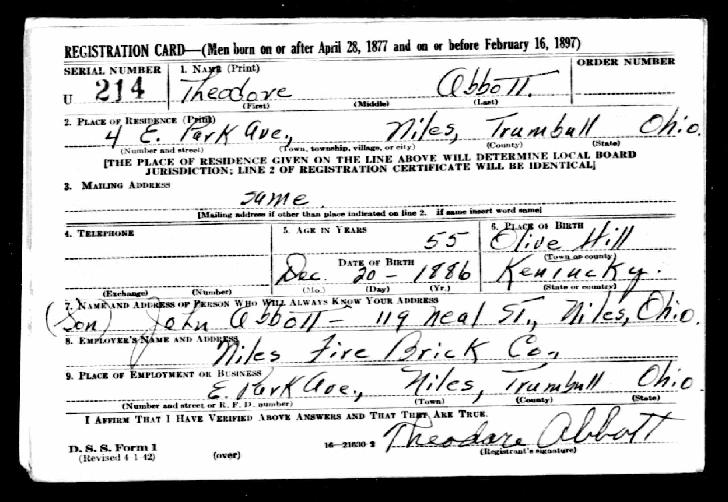 REGISTRATION CARD—(Men born on or after April 28, 1877 and on or before February 16, 1897)
SERIAL NUMBER 1. NAME (Print) ORDER NUMBER
U 214 Theodore Abbott
(First) (Middle) (Last)
2. PLACE OF RESIDENCE (Print)
4 E. Park Ave., Niles, Trumbull Ohio.
(Number and street) (Town, township, village, or city) (County) (State)
[THE PLACE OF RESIDENCE GIVEN ON THE LINE ABOVE WILL DETERMINE LOCAL BOARD
JURISDICTION; LINE 2 OF REGISTRATION CERTIFICATE WILL BE IDENTICAL]
3. MAILING ADDRESS
same.
[Mailing address if other than place indicated on line 2. if same insert word same]
4. TELEPHONE 5. AGE IN YEARS 6. PLACE OF BIRTH
55 Olive Hill
DATE OF BIRTH (Town or county)
Dec. 20 - 1886 Kenincky.
(Exchange) (Number) (Mo.) (Day) (Yr.) (State or country)
7. NAME AND ADDRESS OF PERSON WHO WILL ALWAYS KNOW YOUR ADDRESS
(Son) John Abbott - 119 Neal ST., Niles, Ohio.
8. EMPLOYER'S NAME AND ADDRESS
Niles Fire Brick Co.,
9. PLACE OF EMPLOYMENT OR BUSINESS
E. Park Ave., Niles, Trumbull Ohio.
(Number and street or R. F. D. number) (Town) (County) (State)
I AFFIRM THAT I HAVE VERIFIED ABOVE ANSWERS AND THAT THEY ARE TRUE.
D. S. S. Form 1 16—21630-2 Theodore Abbott
(Revised 4-1-42) (over) (Registrant's signature)